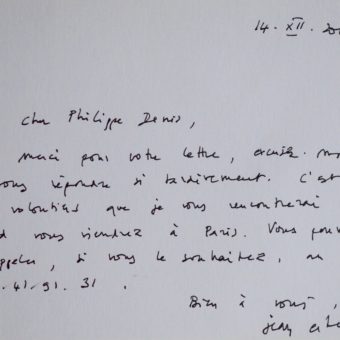 14. XII. 200
Cher Philippe Denis,
merci pour votre lettre, excusez-m
vous répondre si tardivement. C'est
volontiers que je vous rencontrerai
d vous viendrez à Paris. Vous pouv
ppeler, si vous le souhaitez, au
.41.91.31.
Bien à vous,
jean